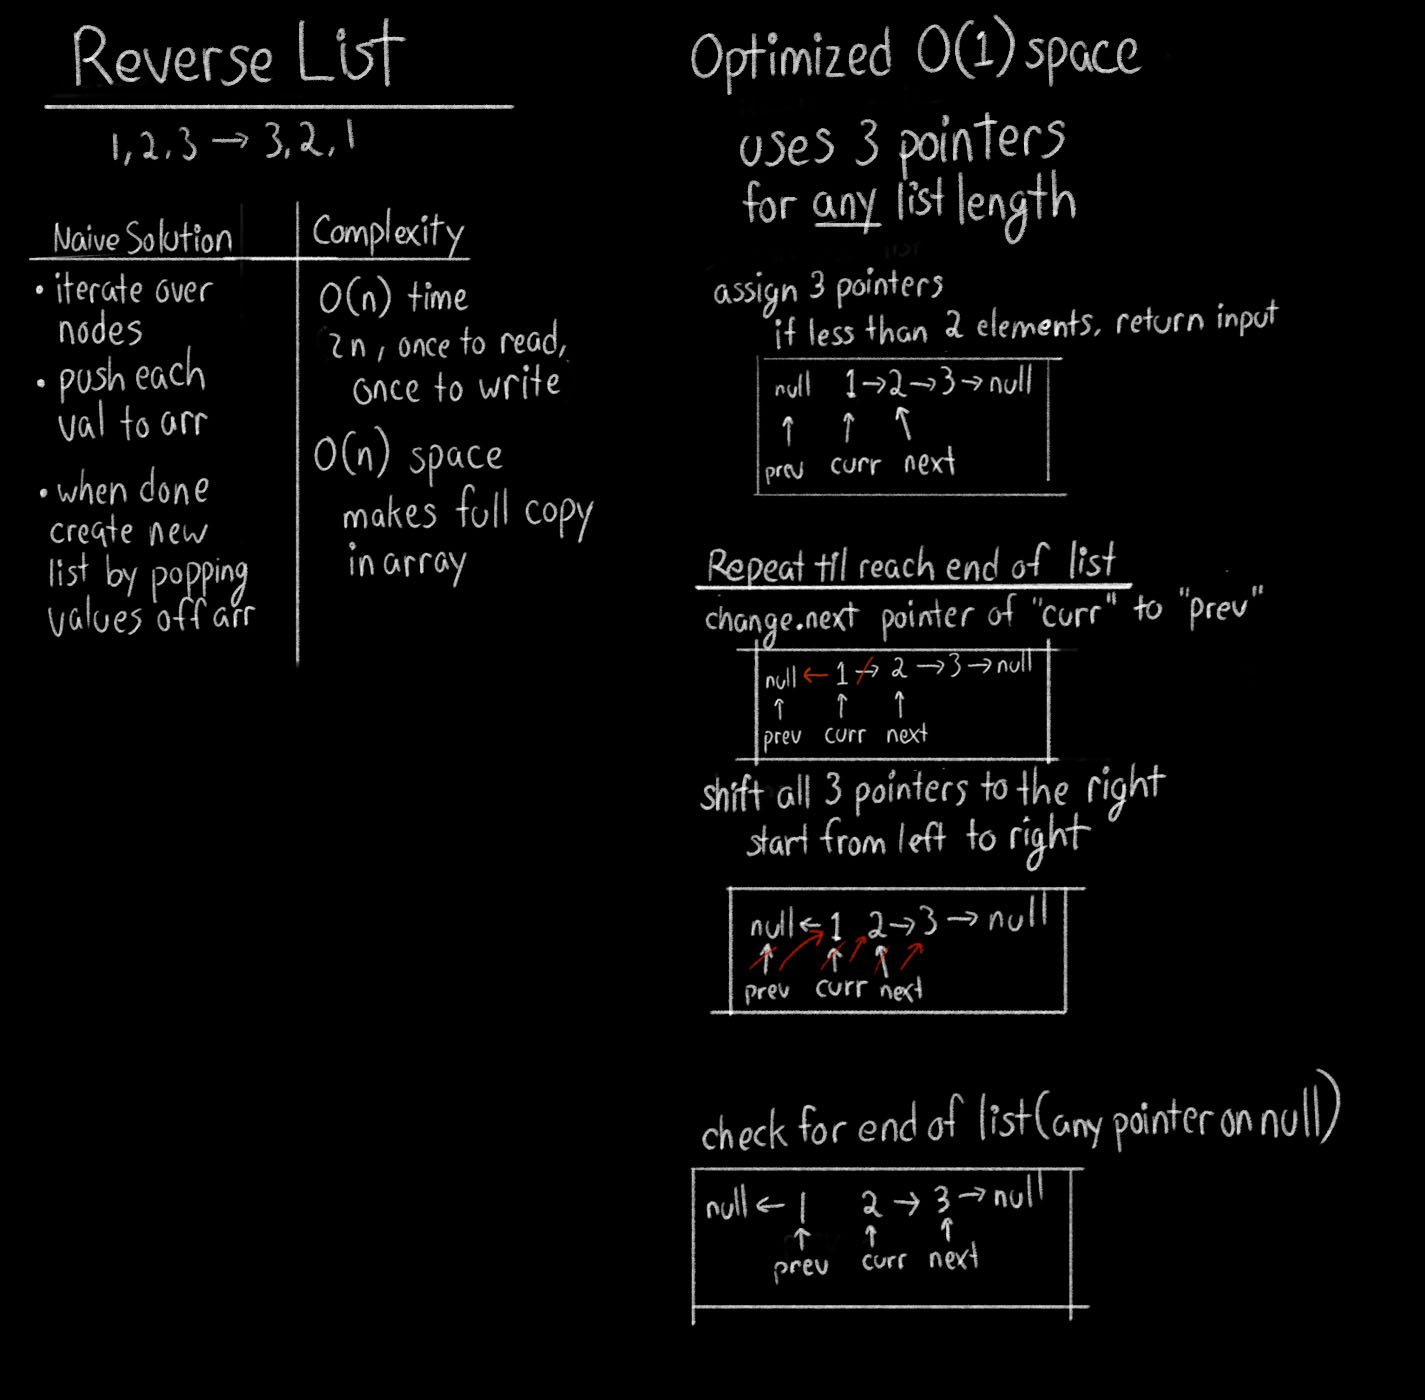 Reverse List
1,2,3 → 3,2,1
Naive Solution
• iterate over
nodes
• push each
val to arr
• when done
create new
list by popping
values off arr
Complexity
O(n) time
2n, once to read,
once to write
O(n) space
makes full copy
in array
Optimized O(1) space
uses 3 pointers
for any list length
assign 3 pointers
if less than 2 elements, return input
null 1→2→3→null
prev curr next
Repeat til reach end of list
change.next pointer of "curr" to "prev"
null ← 1 → 2 → 3 → null
prev curr next
shift all 3 pointers to the right
start from left to right
null ← 1 2 → 3 → null
prev curr next
check for end of list (any pointer on null)
null ← 1 2 → 3 → null
prev curr next